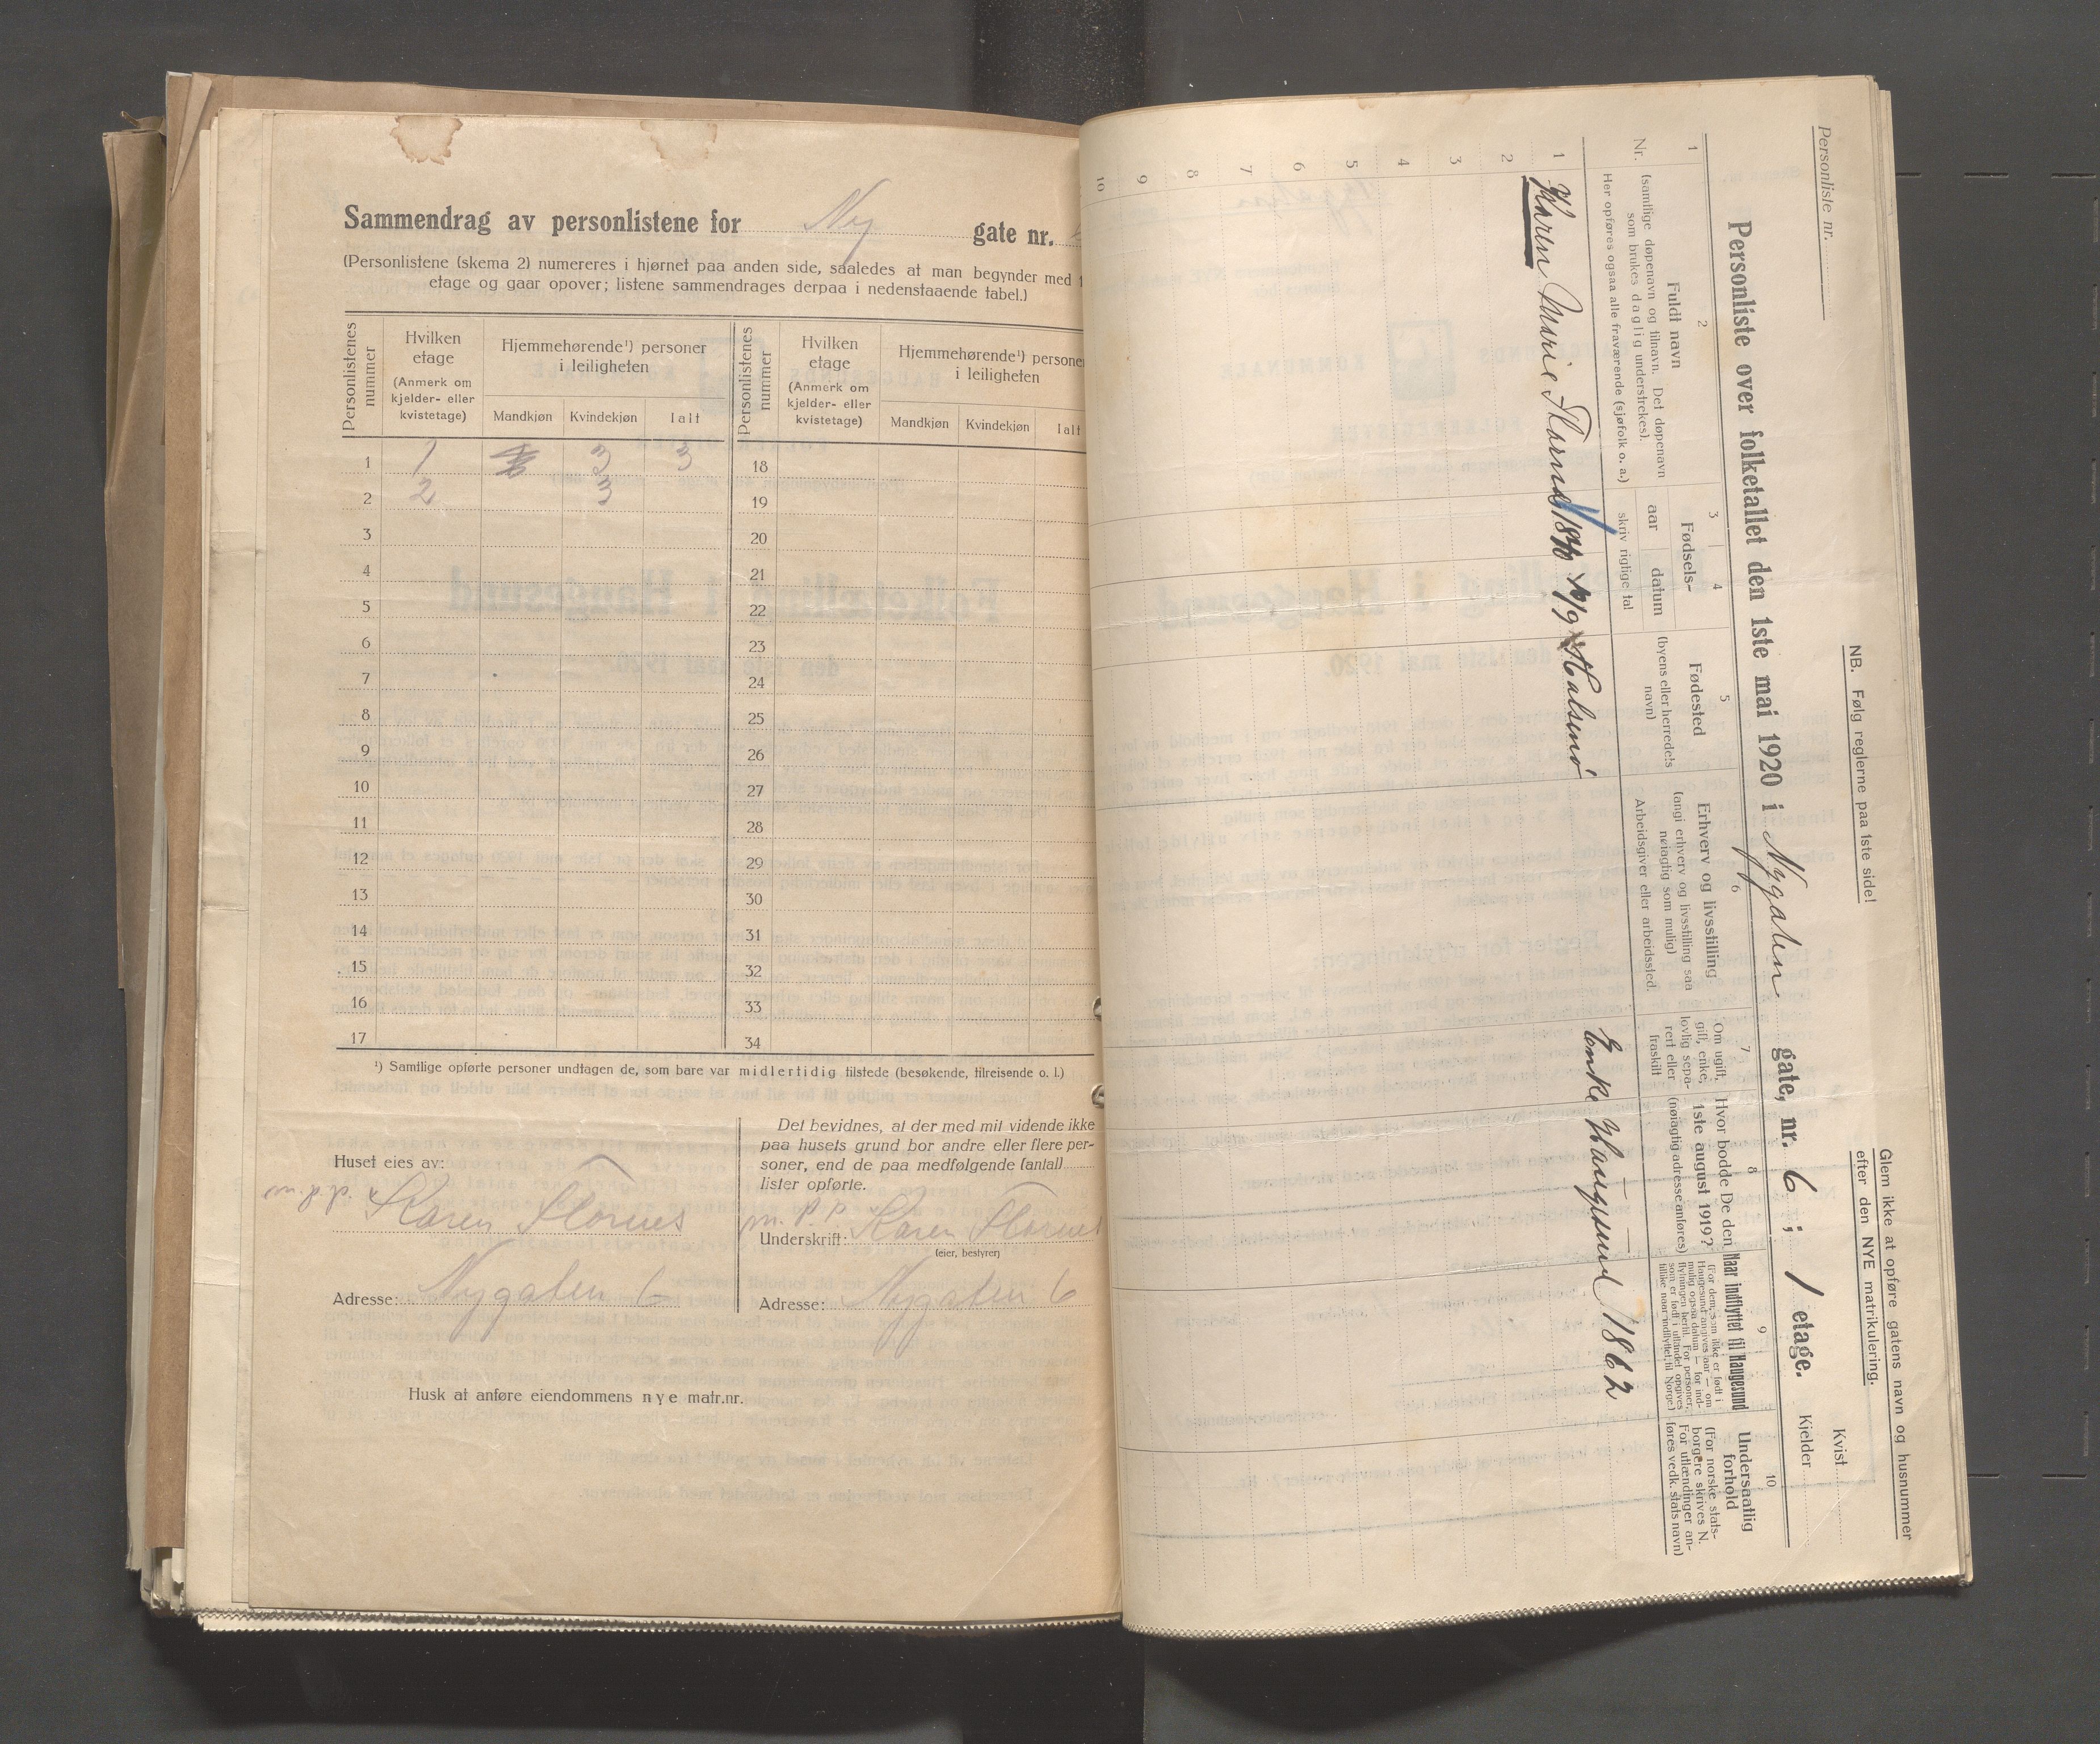 Sammendrag av personlistene for Ny gate nr.
(Personlistene (skema 2) numereres i hjørnet paa anden side, saaledes at man begynder med 1
etage og gaar opover; listene sammendrages derpaa i nedenstaaende tabel.)
Personlistenes nummer
Hvilken etage (Anmerk om kjelder- eller kvistetage)
Hjemmehørende¹) personer i leiligheten
Mandkjøn Kvindekjøn Ialt
Personlistenes nummer
Hvilken etage (Anmerk om kjelder- eller kvistetage)
Hjemmehørende¹) personer i leiligheten
Mandkjøn Kvindekjøn Ialt
1 1 3 3 18
2 2 3 19
3 20
4 21
5 22
6 23
7 24
8 25
9 26
10 27
11 28
12 29
13 30
14 31
15 32
16 33
17 34
¹) Samtlige opførte personer undtagen de, som bare var midlertidig tilstede (besøkende, tilreisende o. l.)
Huset eies av:
m.p.p. Karen Flornes
Adresse: Nygaten 6
Det bevidnes, at der med mit vidende ikke
paa husets grund bor andre eller flere per-
soner, end de paa medfølgende (antal)
lister opførte.
m.p.p. Karen Flornes
Underskrift:
(eier, bestyrer)
Adresse: Nygaten 6
Husk at anføre eiendommens nye matr.nr.
Personliste nr.
NB. Følg reglerne paa 1ste side!
Glem ikke at opføre gatens navn og husnummer
efter den NYE matrikulering.
Kvist
Kjelder
Personliste over folketallet den 1ste mai 1920 i Nygaten gate, nr. 6; 1 etage.
1 2 3 4 5 6 7 8 9 10
Nr.
Fuldt navn
(samtlige døpenavn og tilnavn. Det døpenavn
som brukes daglig understrekes).
Her opføres ogsaa alle fraværende (sjøfolk o. a.)
Fødsels-
aar datum
skriv rigtige tal
Fødested
(byens eller herredets
navn)
Erhverv og livsstilling
(angi erhverv og livsstilling saa
nøiagtig som mulig)
Arbeidsgiver eller arbeidssted.
Om ugift,
gift, enke,
lovlig sepa-
rert eller
fraskilt
Hvor bodde De den
1ste august 1919?
(nøiagtig adresse anføres)
Naar indflyttet til Haugesund
(For dem, som ikke er født i
Haugesund angives aar — om
mulig ogsaa datum — for ind-
flytningen hertil. For personer,
som er født i utlandet opgives
tillike naar indflyttet til Norge.)
Undersaatlig
forhold
(For norske stats-
borgere skrives N.
For utlændinger an-
føres vedk. stats navn)
1 Karen Marie Flornes 18 /9 Halsenø Enke Haugesund 1862
2
3
4
5
6
7
8
9
10